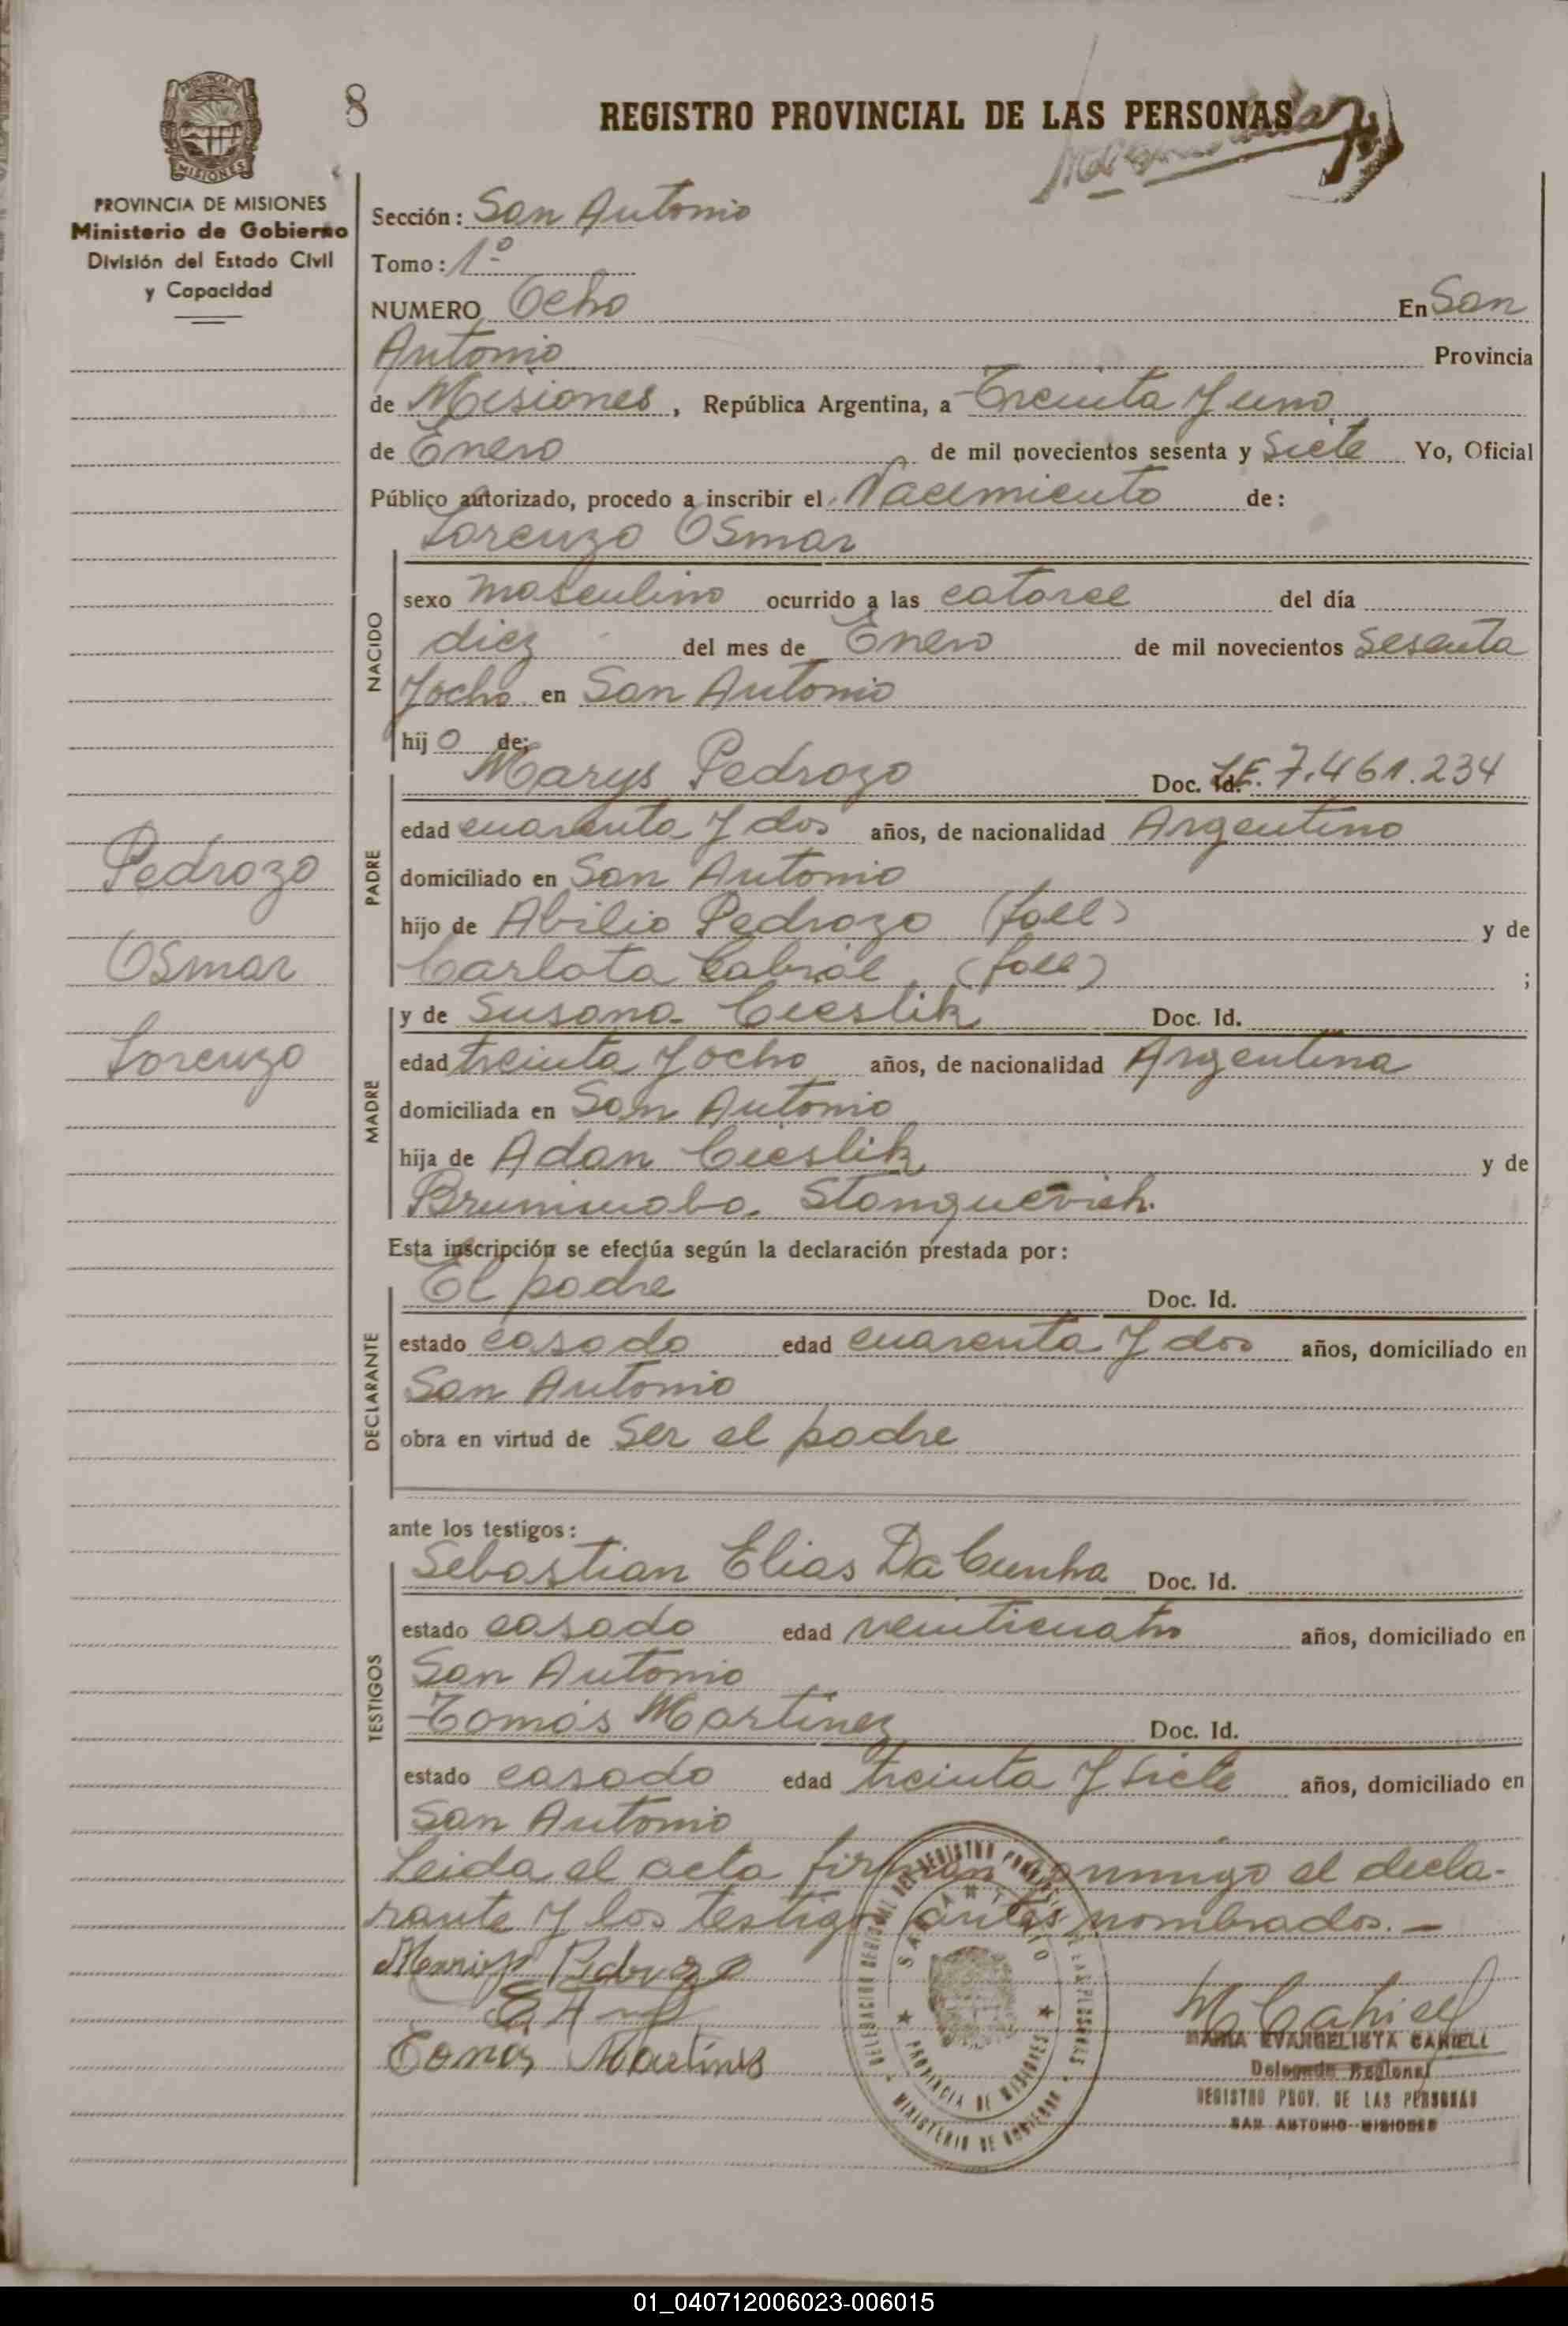 8
REGISTRO PROVINCIAL DE LAS PERSONAS
PROVINCIA DE MISIONES
Ministerio de Gobierno
División del Estado Civil
y Capacidad
Sección: San Antonio
Tomo: 1º
NUMERO Ocho En San
Antonio Provincia
de Misiones, República Argentina, a Treinta y uno
de Enero de mil novecientos sesenta y Siete Yo, Oficial
Público autorizado, procedo a inscribir el Nacimiento de:
Lorenzo Osmar
NACIDO
sexo masculino ocurrido a las catorce del día
diez del mes de Enero de mil novecientos Sesenta
y ocho en San Antonio
hijo de:
PADRE
Marys Pedrozo Doc. Id. 7.461.234
edad cuarenta y dos años, de nacionalidad Argentino
domiciliado en San Antonio
hijo de Abilio Pedrozo (fall) y de
Carlota Cabral (fall) ;
MADRE
y de Susana Cieslik Doc. Id.
edad treinta y ocho años, de nacionalidad Argentina
domiciliada en San Antonio
hija de Adan Cieslik y de
Stanguevich.
Esta inscripción se efectúa según la declaración prestada por:
DECLARANTE
El padre Doc. Id.
estado casado edad cuarenta y dos años, domiciliado en
San Antonio
obra en virtud de ser el padre
Pedrozo
Osmar
Lorenzo
ante los testigos:
TESTIGOS
Sebastian Elias Da Cunha Doc. Id.
estado casado edad veinticuatro años, domiciliado en
San Antonio
Tomás Martinez Doc. Id.
estado casado edad treinta y siete años, domiciliado en
San Antonio
Leida el acta firman conmigo el decla-
rante y los testigos antes nombrados.-
Tomás Martines
MARIA EVANGELISTA CAHIELL
Delegada Regional
REGISTRO PROV. DE LAS PERSONAS
SAN ANTONIO-MISIONES
DELEGACION REGIONAL DEL REGISTRO PROVINCIAL DE LAS PERSONAS
SAN ANTONIO
PROVINCIA DE MISIONES
MINISTERIO DE GOBIERNO
01_040712006023-006015